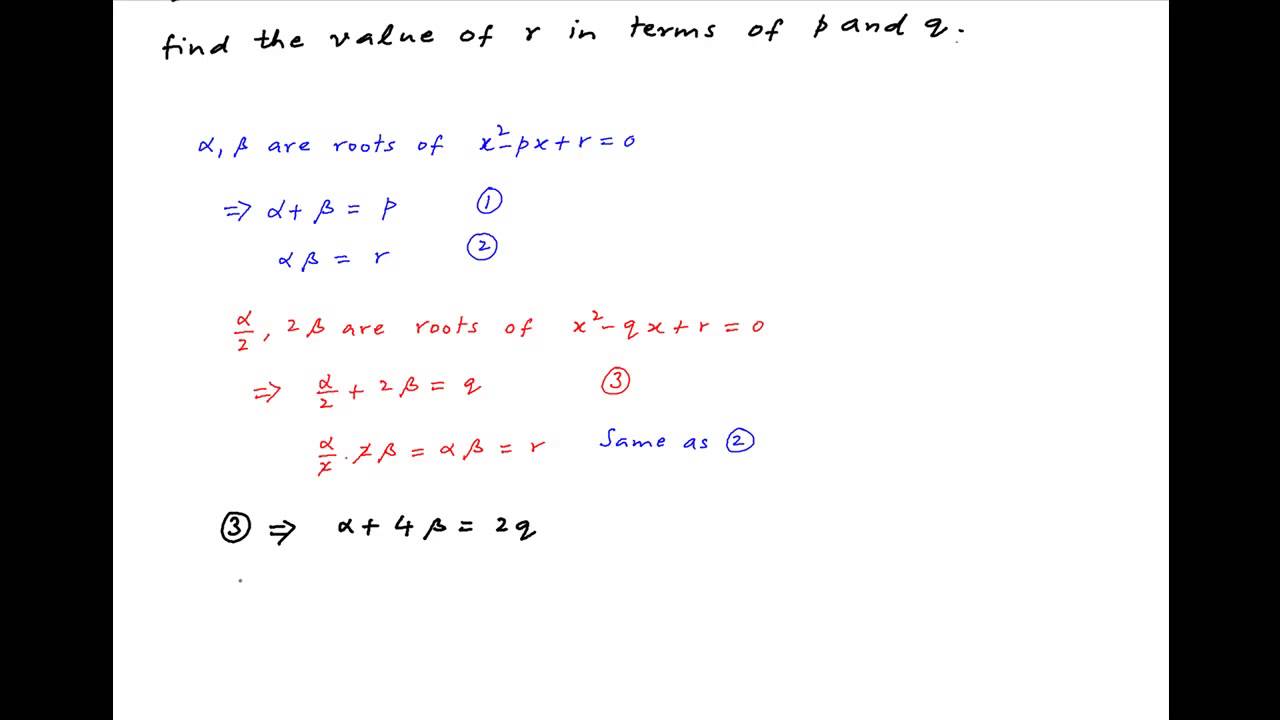 find the value of r in terms of p and q.
α, β are roots of x²-px+r=0
⇒ α+ β = p ①
αβ = r ②
α/2, 2β are roots of x²-qx+r=0
⇒ α/2 + 2β = q ③
α/2 · 2β = αβ = r Same as ②
③ ⇒ α+4β = 2q